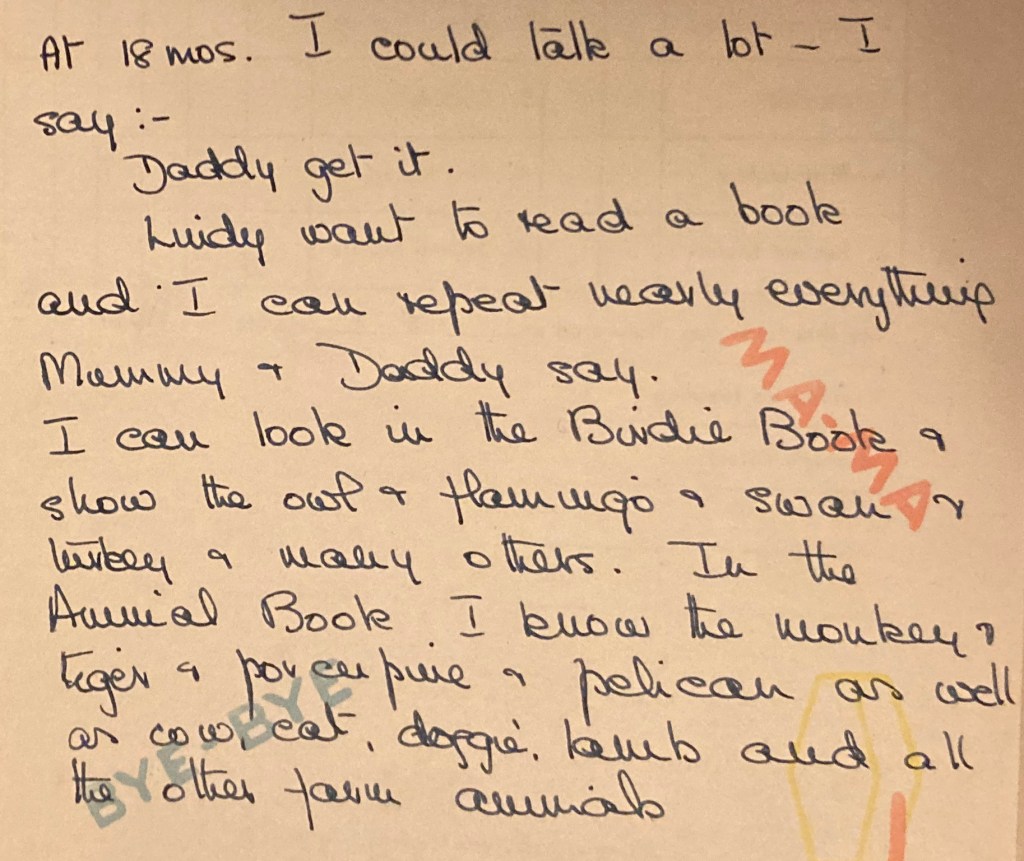 At 18 mos. I could talk a lot - I
say :-
Daddy get it.
Luidy want to read a book
and I can repeat nearly everything
Mummy & Daddy say.
MA-MA
I can look in the Birdie Book &
show the owl & flamingo & swan &
turkey & many others. In the
Animal Book I know the monkey &
tiger & porcupine & pelican as well
as cow, cat, doggie, lamb and all
BYE-BYE
the other farm animals